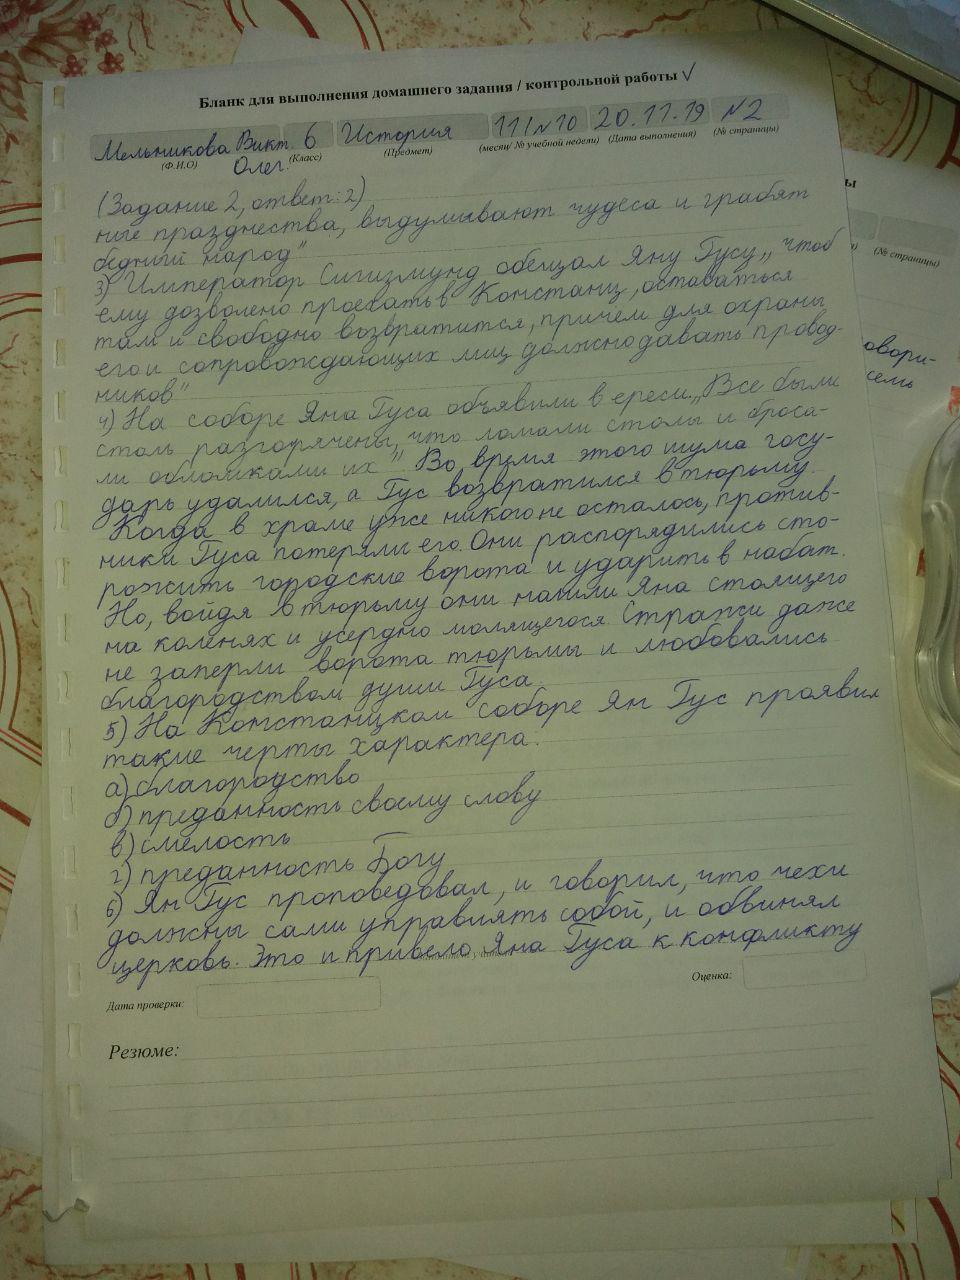 Бланк для выполнения домашнего задания / контрольной работы √
Мельникова Викт. 6 История 111/№10 20.11.19 №2
(Ф.И.О) Олег. (Класс) (Предмет) (месяц/ № учебной недели) (Дата выполнения) (№ страницы)
(Задание 2, ответ: 2)
ные празднества, выдумывают чудеса и грабят
бедний народ"
3) Император Сигизмунд обещал Яну Гусу „чтоб
ему дозволено проехать в Констанц, оставаться
там и свободно возвратится, причем для охраны
его и сопровождающих лиц должно давать провод-
ников"
4) На соборе Яна Гуса объявили в ереси. „Все были
столь разгорячены, что ломали столы и броса-
ли обломками их". Во время этого шума госу-
дарь удалился, а Гус возвратился в тюрьму.
Когда в храме уже никого не осталось, против-
ники Гуса потеряли его. Они распорядились сто-
рожить городские ворота и ударить в набат.
Но, войдя в тюрьму они нашли Яна стоящего
на коленях и усердно молящегося. Стражи даже
не заперли ворота тюрьмы и любовались
благородством души Гуса.
5) На Констанцком соборе Ян Гус проявил
такие черты характера:
а) благородство
б) преданность своему слову
в) смелость
г) преданность Богу
6) Ян Гус проповедовал, и говорил, что чехи
должны сами управлять собой, и обвинял
церковь. Это и привело Яна Гуса к конфликту
Дата проверки:
Оценка:
Резюме:
ы
(№ страницы)
овори-
семь